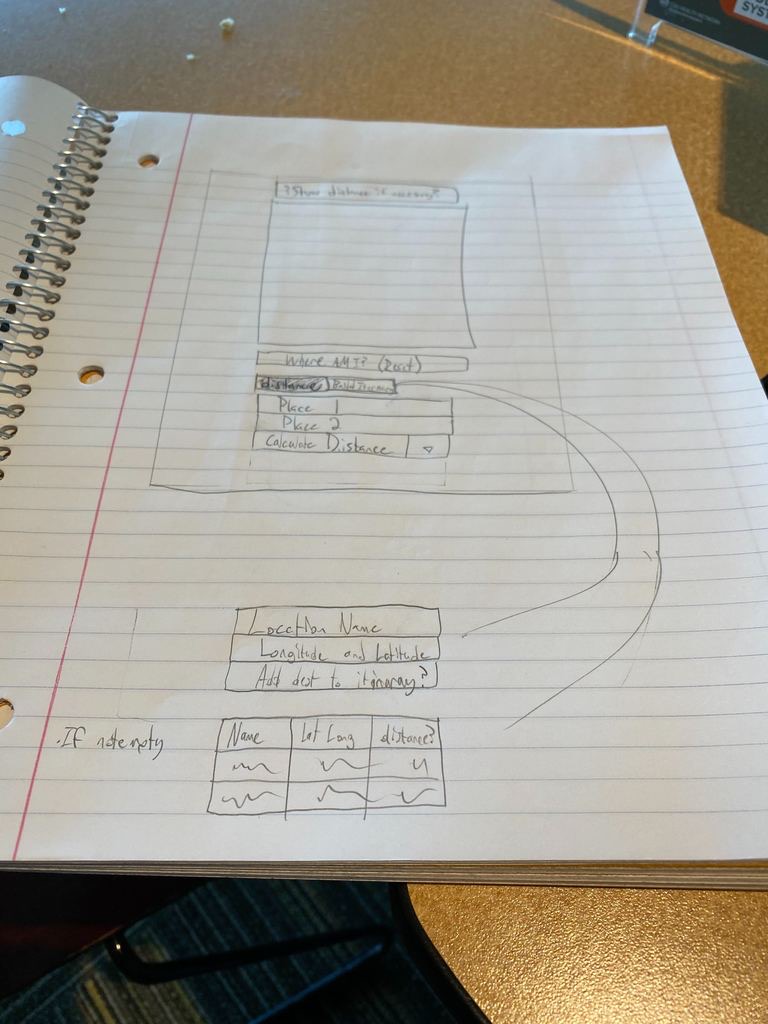 ?Show distance if necessary?
Where AM I? (Reset)
distance Build Itinerary
Place 1
Place 2
Calculate Distance
Location Name
Longitude and Latitude
Add dest to itinaray?
.If not empty
Name Lat Long distance?
SYST